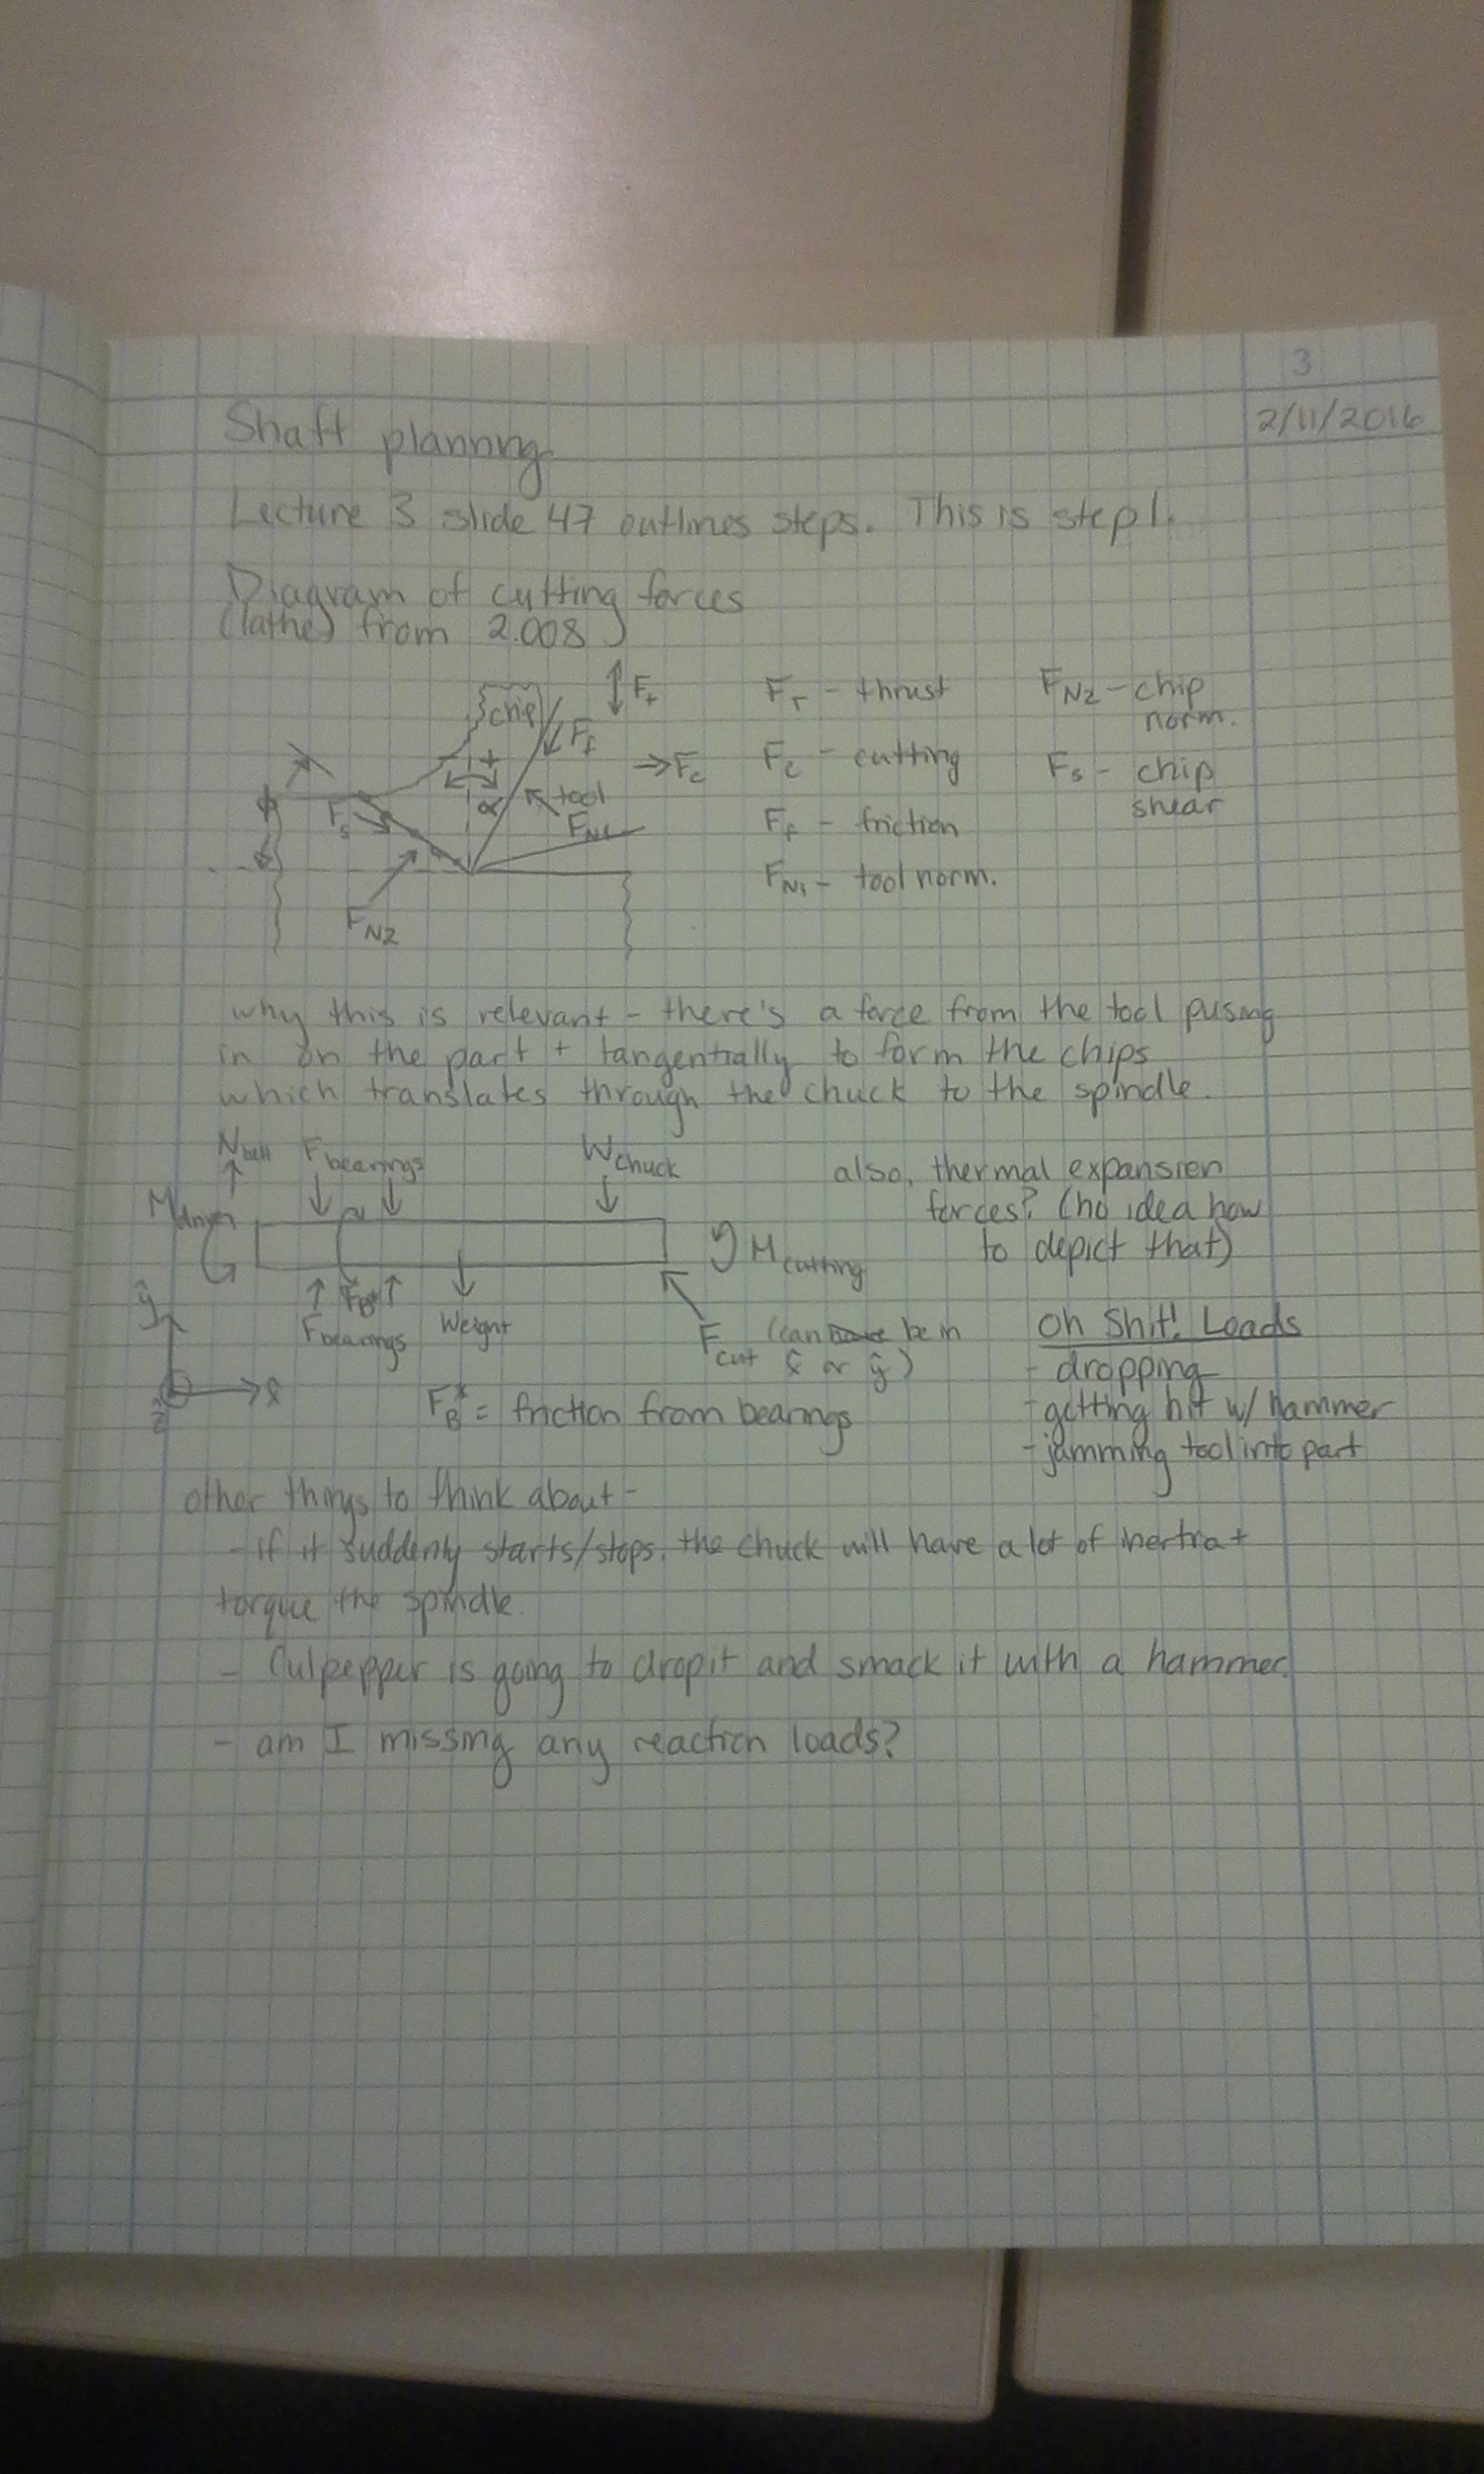 3
2/11/2016
Shaft planning
Lecture 3 slide 47 outlines steps. This is step 1.
Diagram of cutting forces
(lathe) from 2.008
chip
Ft
Ff
+
→Fc
α
tool
Fs
FN1
FN2
FT - thrust
FN2 - chip norm.
Fc - cutting
Fs - chip shear
Ff - friction
FN1 - tool norm.
why this is relevant - there's a force from the tool pusing
in on the part + tangentially to form the chips
which translates through the chuck to the spindle.
Nbelt
Fbearings
Wchuck
Mdriven
Mcutting
FB*
Fbearings
Weight
Fcut (can be in
x̂ or ŷ)
ŷ
x̂
ẑ
FB* = friction from bearings
also, thermal expansion
forces? (no idea how
to depict that)
Oh Shit! Loads
- dropping
- getting hit w/ hammer
- jamming tool into part
other things to think about -
- if it suddenly starts/stops, the chuck will have a lot of inertia +
torque the spindle.
- Culpepper is going to drop it and smack it with a hammer.
- am I missing any reaction loads?